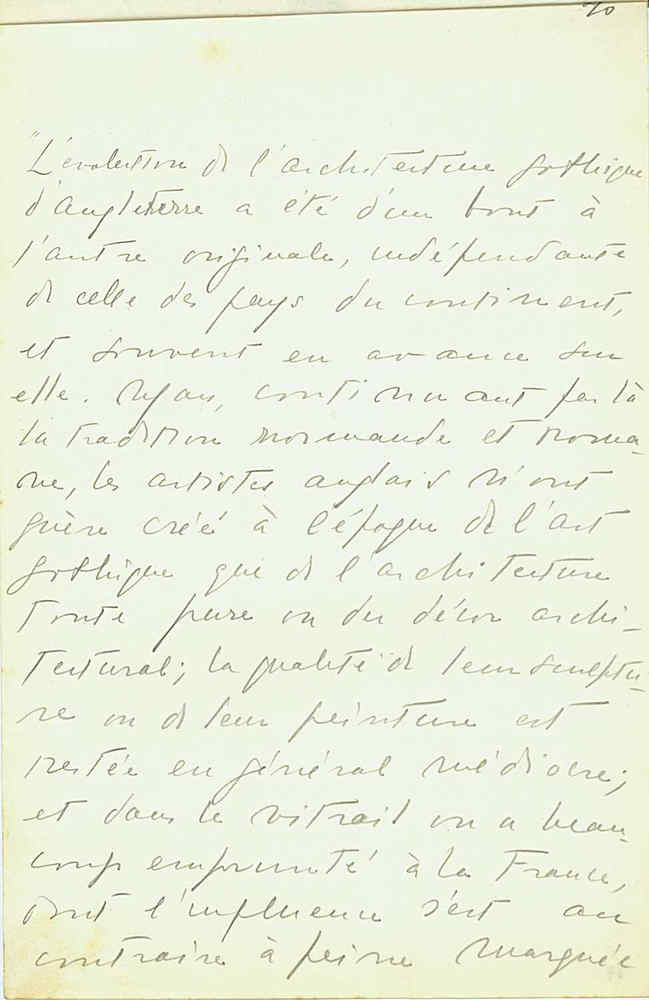 70
"L'évolution de l'architecture gothique
d'Angleterre a été d'un bout à
l'autre originale, indépendante
de celle des pays du continent,
et souvent en avance sur
elle. Mais, continuant par là
la tradition normande et roma-
ne, les artistes anglais n'ont
guère créé à l'époque de l'art
gothique que de l'architecture
toute pure ou du décor archi-
tectural; la qualité de leur sculptu-
re ou de leur peinture est
restée en général médiocre;
et dans le vitrail on a beau-
coup emprunté à la France,
dont l'influence s'est au
contraire à peine marquée